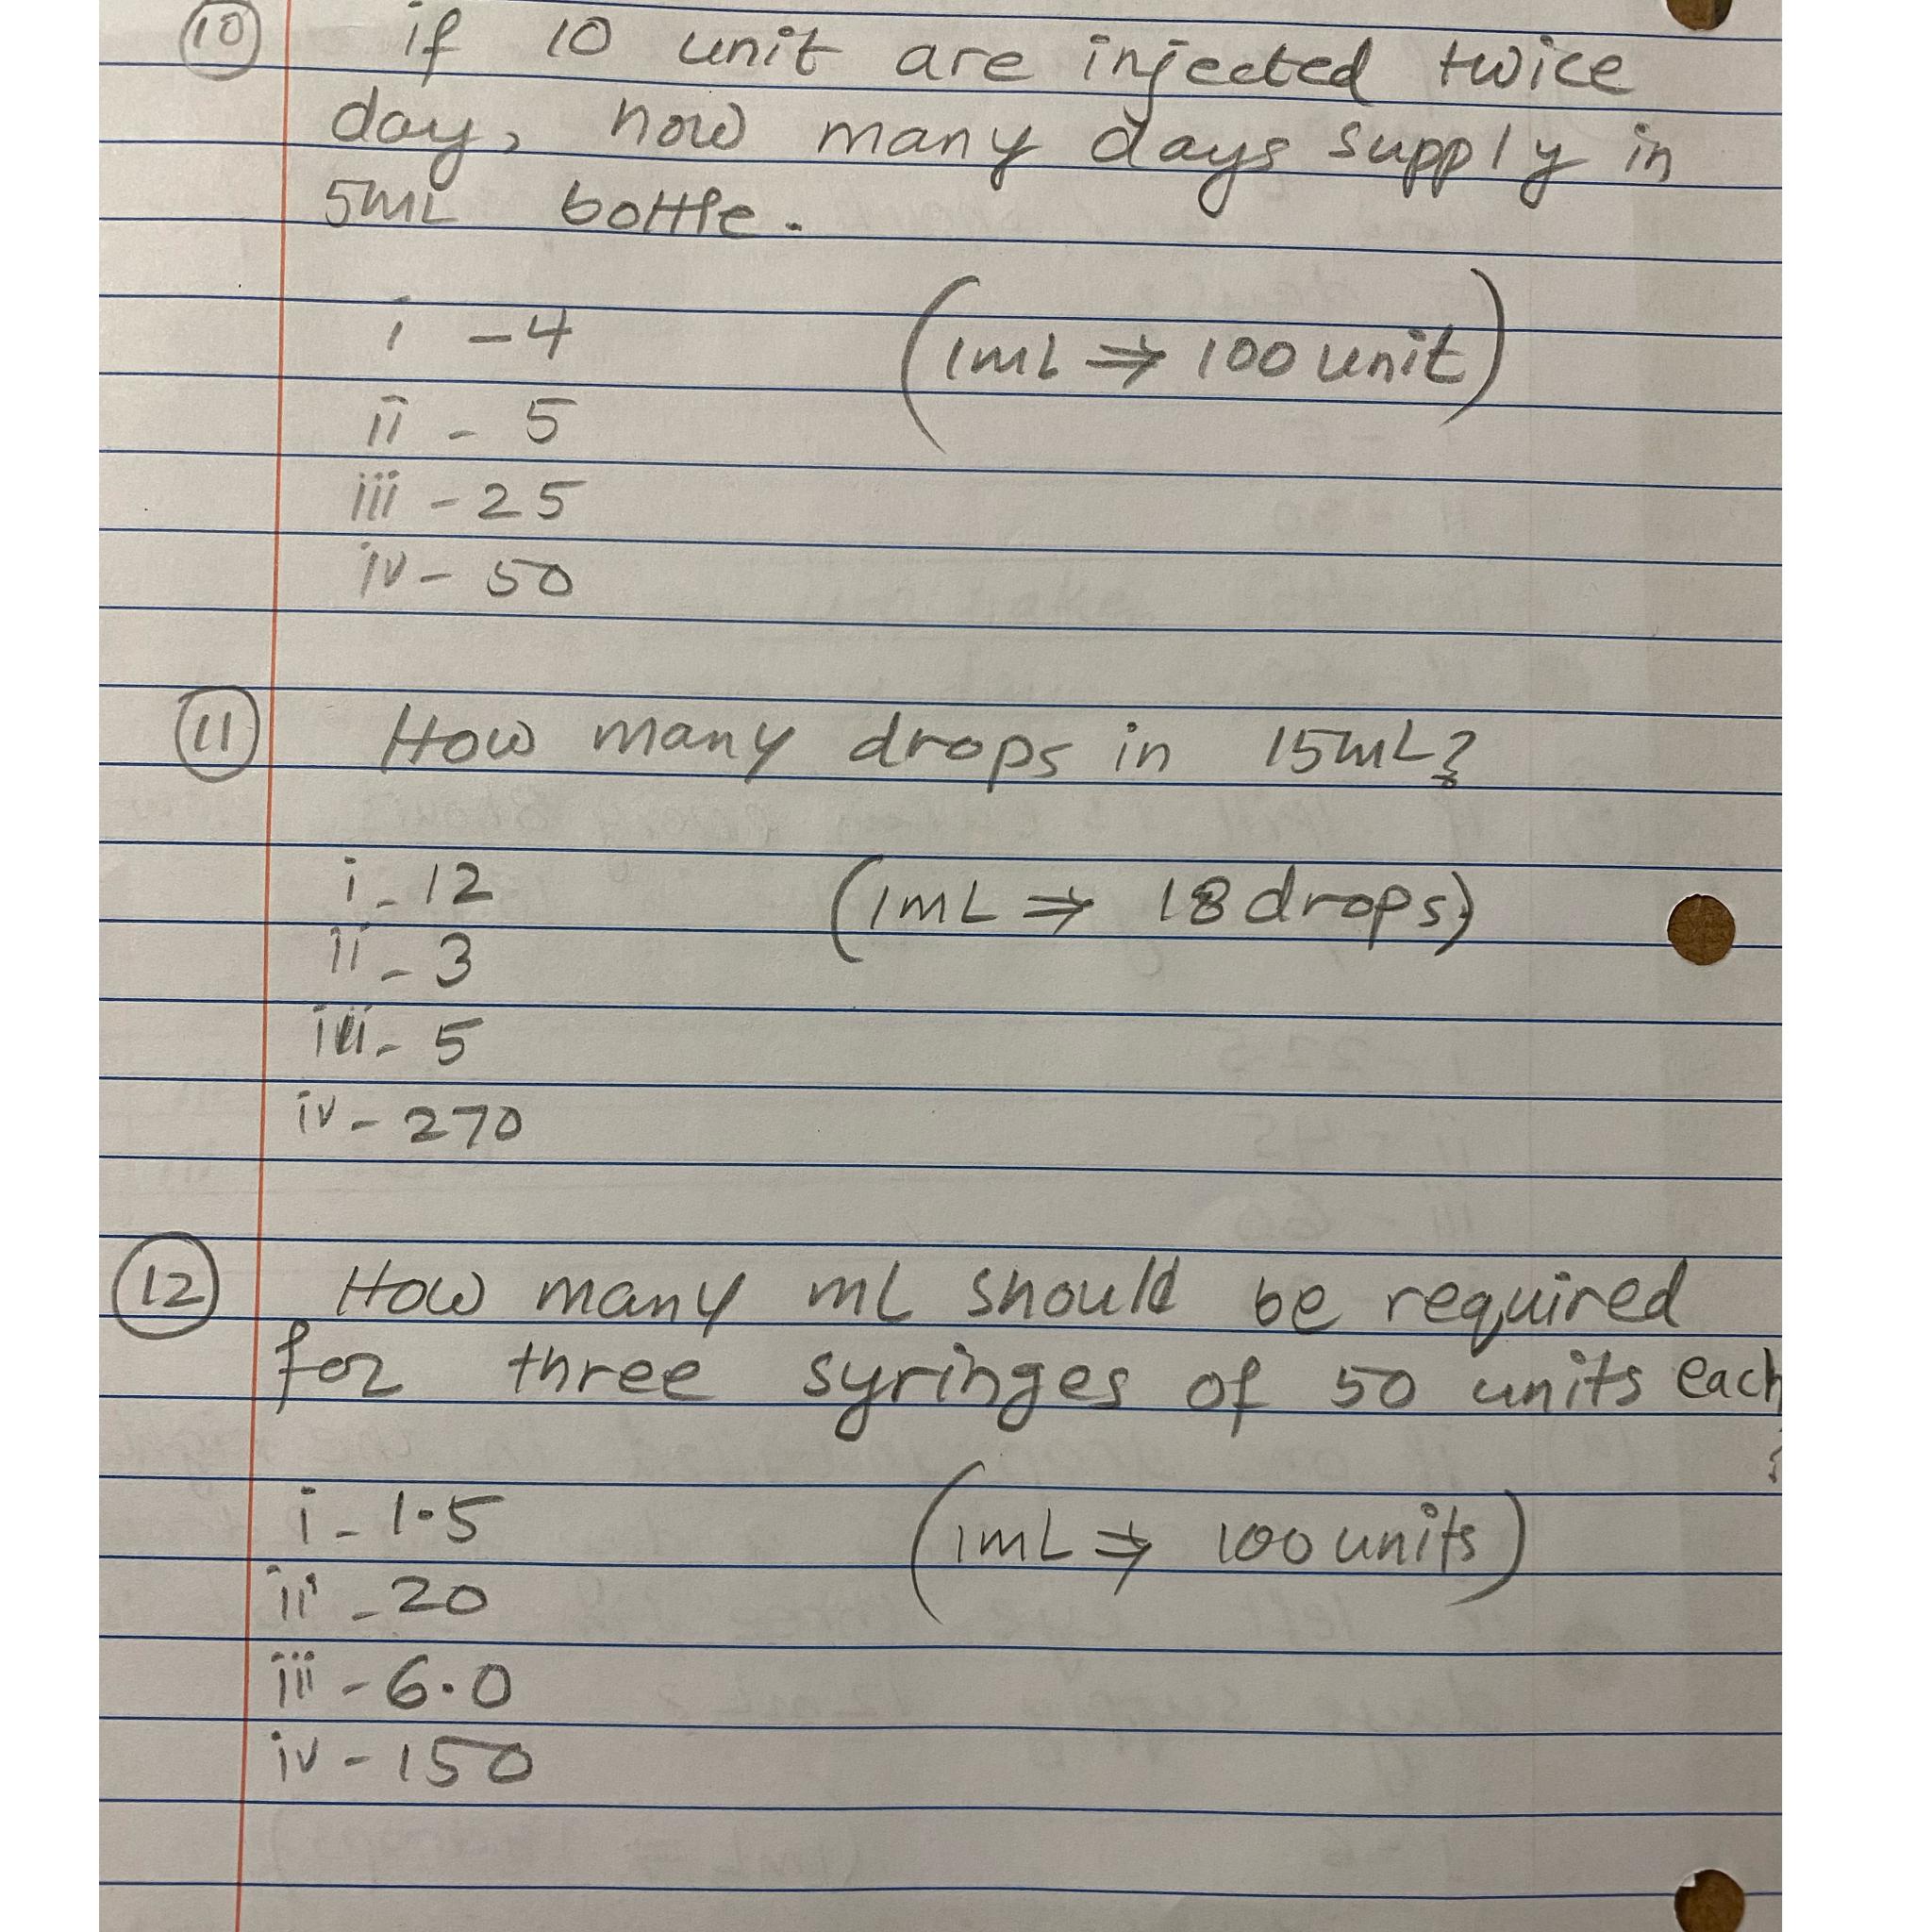 10 if 10 unit are injected twice
day, how many days supply in
5mL bottle.
i - 4 (1mL ⇒ 100 unit)
ii - 5
iii - 25
iv - 50
11 How many drops in 15mL?
i - 12 (1mL ⇒ 18 drops)
ii - 3
iii - 5
iv - 270
12 How many mL should be required
for three syringes of 50 units each
?
i - 1.5 (1mL ⇒ 100 units)
ii - 20
iii - 6.0
iv - 150